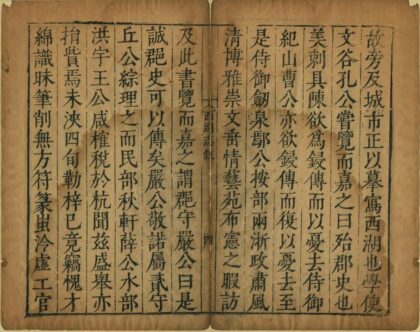 故旁及城市正以摹寫西湖也學使
文谷孔公嘗覽而嘉之曰殆郡史也
美刺具陳欲爲鋟傳而以憂去侍御
紀山曹公亦欲鋟傳而復以憂去至
是侍御劒泉鄢公按部兩浙政肅風
淸博雅崇文畬情藝苑布憲之暇訪
西湖志敘
四
及此書覽而嘉之謂郡守嚴公曰是
誠郡史可以傳矣嚴公敬諾屬貳守
丘公綜理之而民部秋軒薛公水部
洪宇王公咸榷稅於杭聞茲盛舉亦
捐貲焉未浹四旬勒梓已竟竊愧才
綿識昧筆削無方符篆蚩泠虛工官